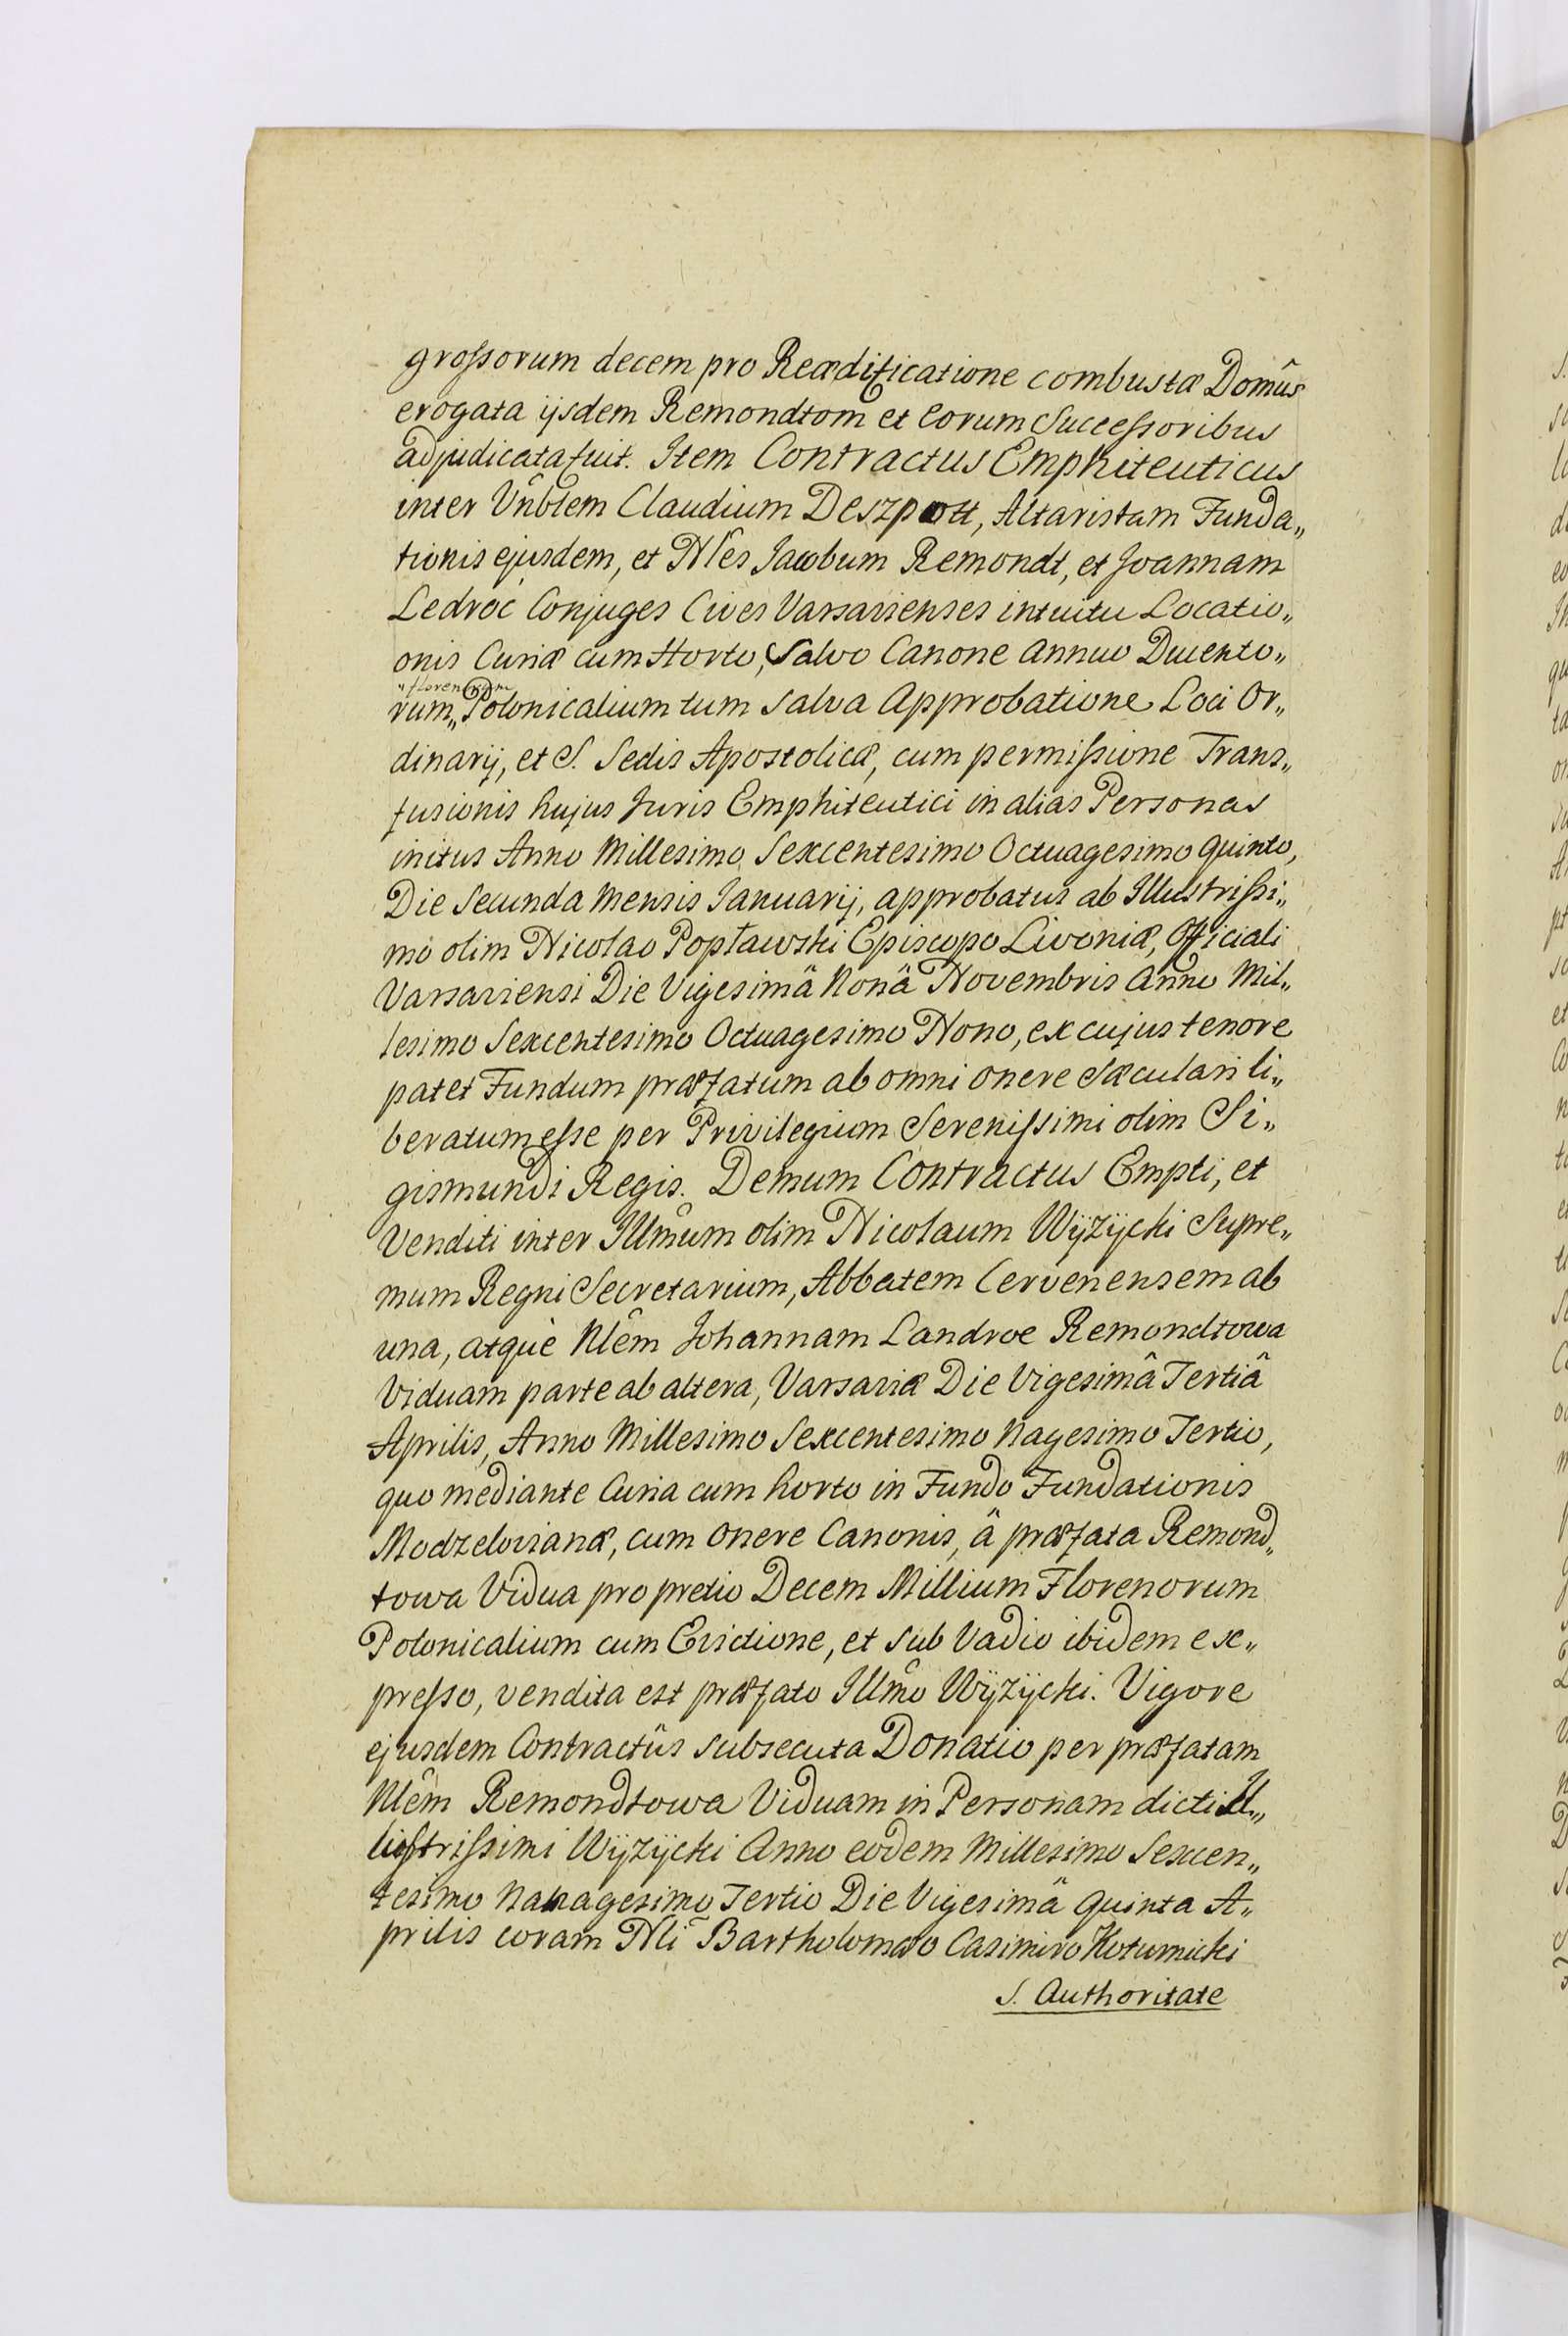 groſsorum decem pro Reædificatione combustæ Domûs
erogata ijsdem Remondtom et eorum Succeſsoribus
adjudicata fuit. Item Contractus Emphiteuticus
inter Vnblem Claudium Deszpott, Altaristam Funda„
tionis ejusdem, et Nles Jacobum Remondt, et Joannam
Ledroć Conjuges Cives Varsavienses intuitu Locatio„
onis Curiæ cum Horto, Salvo Canone annuo Ducento„
„florenorum
rum„ Polonicalium tum salva Approbatione Loci Or„
dinarij, et S. Sedis Apostolicæ, cum permiſsione Trans„
fusionis hujus Juris Emphiteutici in alias Personas
initus Anno Millesimo Sexcentesimo Octuagesimo quinto,
Die Secunda Mensis Januarij, approbatus ab Illustriſsi„
mo olim Nicolao Popławski Episcopo Livoniæ, Officiali
Varsaviensi Die Vigesimâ Nonâ Novembris Anno Mil„
lesimo Sexcentesimo Octuagesimo Nono, ex cujus tenore
patet Fundum præfatum ab omni onere Sæculari li„
beratum eſse per Privilegium Sereniſsimi olim Si„
gismundi Regis. Demum Contractus Empti, et
Venditi inter Illmum olim Nicolaum Wÿzÿcki Supre„
mum Regni Secretarium, Abbatem Cervenensem ab
una, atquè Nlêm Johannam Landroe Remondtowa
Viduam parte ab altera, Varsaviæ Die Vigesimâ Tertiâ
Aprilis, Anno Millesimo Sexcentesimo Nagesimo Tertio,
quo mediante Curia cum horto in Fundo Fundationis
Modzelovianæ, cum onere Canonis, â præfata Remond„
towa Vidua pro pretio Decem Millium Florenorum
Polonicalium cum Evictione, et sub Vadio ibidem ex„
preſso, vendita est præfato Illmo Wÿzÿcki. Vigore
ejusdem Contractûs subsecuta Donatio per præfatam
Nlêm Remondtowa Viduam in Personam dicti Il„
luſtriſsimi Wÿzÿcki Anno eodem Millesimo Sexcen„
tesimo Nanagesimo Tertio Die Vigesimâ quinta A„
prilis coram Nli Bartholomæo Casimiro Koturnicki
S. Authoritate